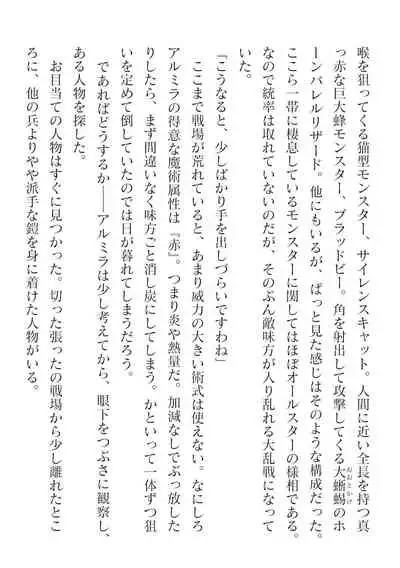 喉を狙ってくる猫型モンスター、サイレンスキャット。人間に近い全長を持つ真
っ赤な巨大蜂モンスター、ブラッドビー。角を射出して攻撃してくる大蜥蜴のホ
ーンバレルリザード。他にもいるが、ぱっと見た感じはそのような構成だった。
ここら一帯に棲息しているモンスターに関してはほぼオールスターの様相である。
なので統率は取れていないのだが、そのぶん敵味方が入り乱れる大乱戦になって
いた。
「こうなると、少しばかり手を出しづらいですわね」
ここまで戦場が荒れていると、あまり威力の大きい術式は使えない。なにしろ
アルミラの得意な魔術属性は『赤』。つまり炎や熱量だ。加減なしでぶっ放した
りしたら、まず間違いなく味方ごと消し炭にしてしまう。かといって一体ずつ狙
いを定めて倒していたのでは日が暮れてしまうだろう。
であればどうするか――アルミラは少し考えてから、眼下をつぶさに観察し、
ある人物を探した。
お目当ての人物はすぐに見つかった。切った張ったの戦場から少し離れたとこ
ろに、他の兵よりやや派手な鎧を身に着けた人物がいる。